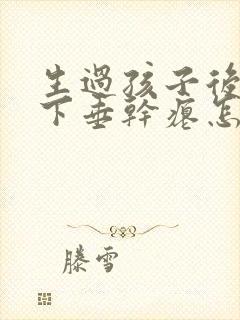 生過孩子後
下垂幹癟怎
滕雪